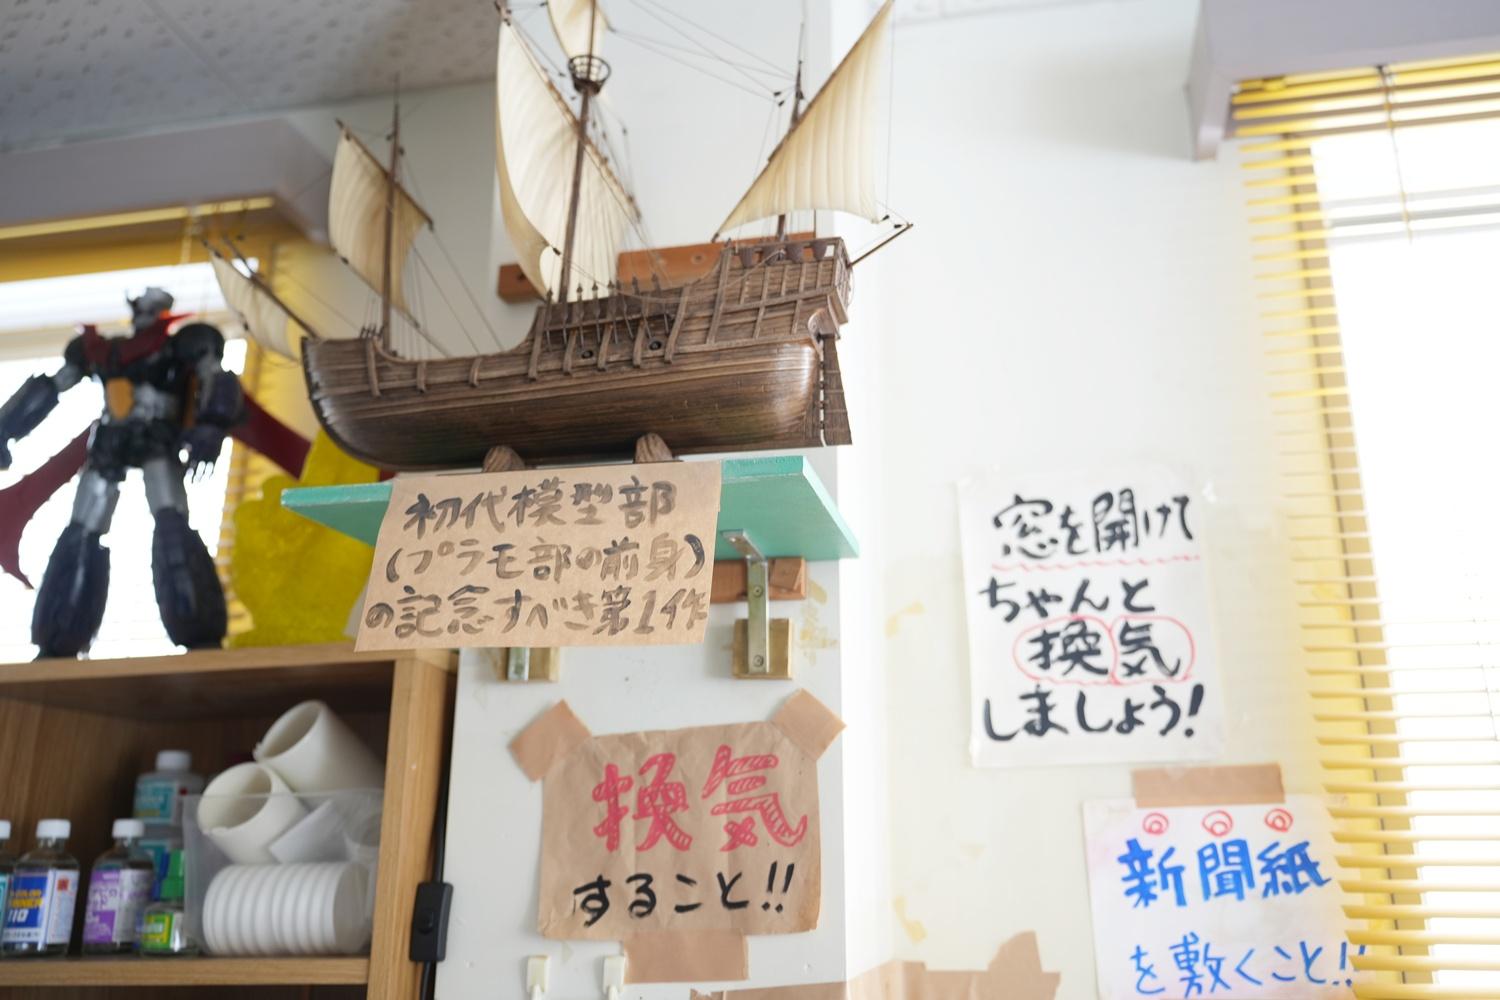 初代模型部
(プラモ部の前身)
の記念すべき第1作
換気
すること!!
窓を開けて
ちゃんと
換気
しましょう!
新聞紙
を敷くこと!!